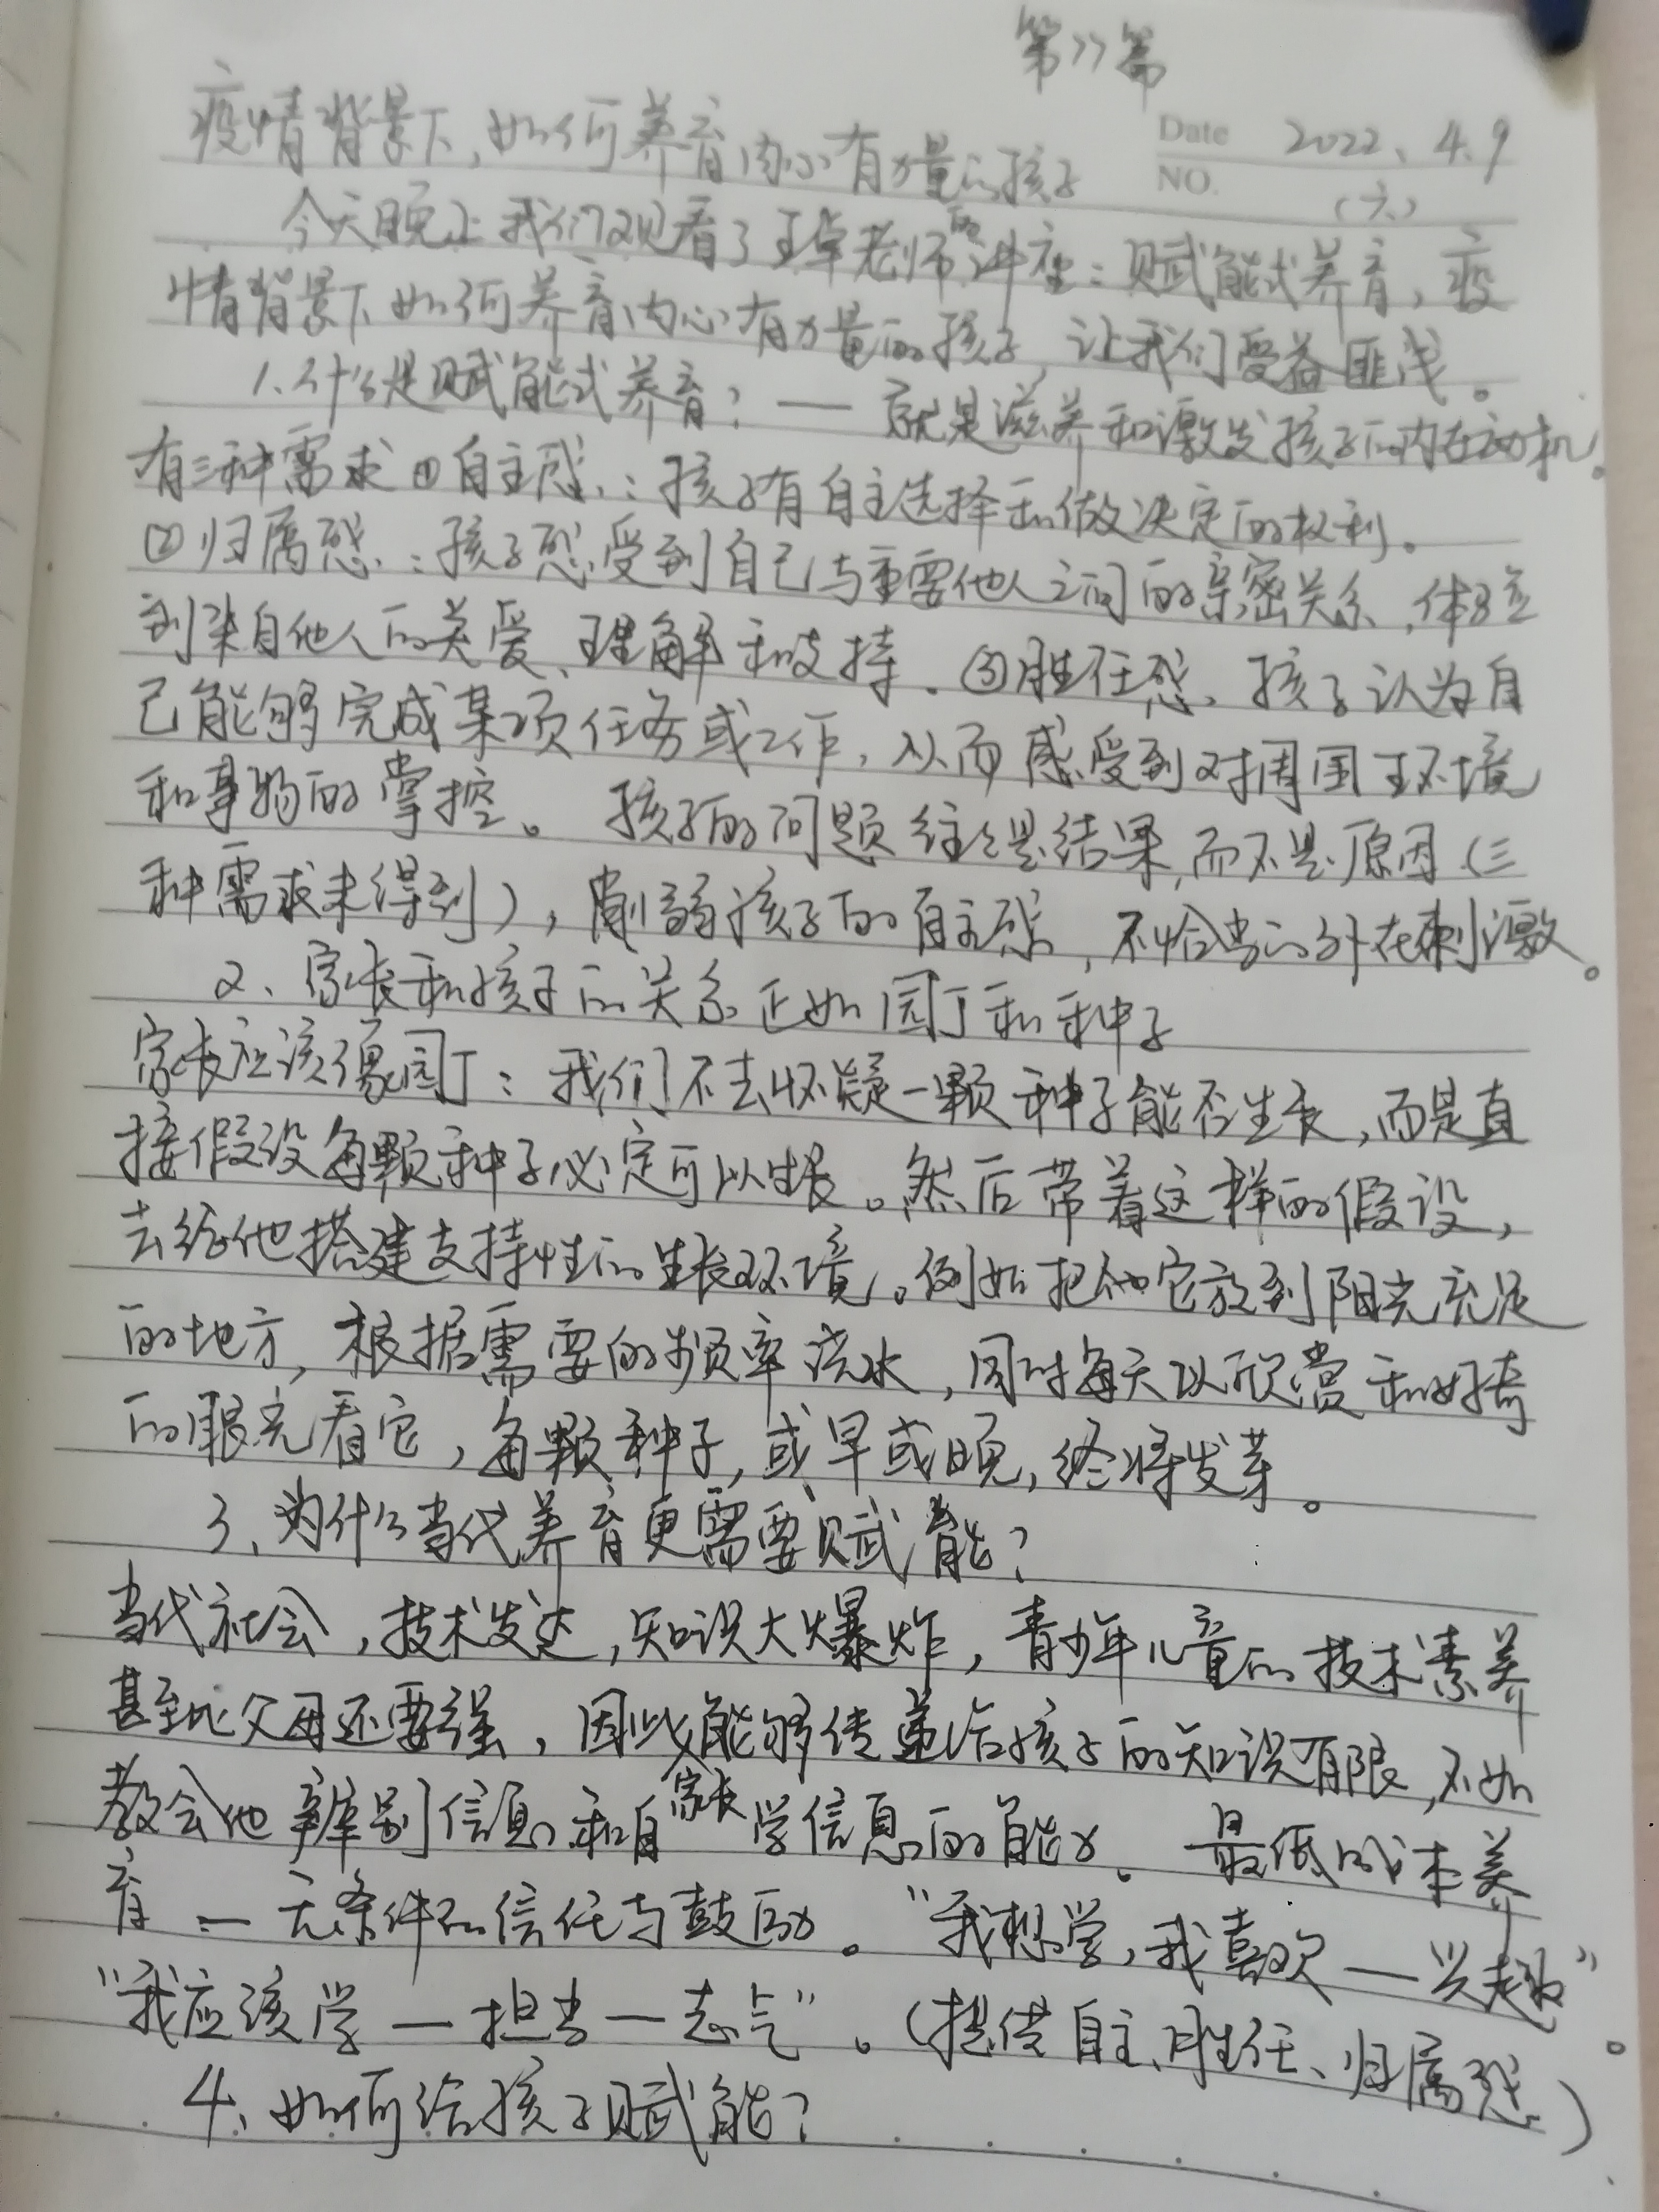 第77篇
疫情背景下,如何养育内心有力量的孩子
Date 2022、4.9
NO. (六)
今天晚上我们观看了王卓老师的讲座:赋能式养育,疫
情背景下如何养育内心有力量的孩子,让我们受益匪浅。
1.什么是赋能式养育?— 就是滋养和激发孩子的内在动机。
有三种需求①自主感:孩子有自主选择和做决定的权利。
②归属感:孩子感受到自己与重要他人之间的亲密关系,体验
到来自他人的关爱、理解和支持。③胜任感、孩子认为自
己能够完成某项任务或工作,从而感受到对周围环境
和事物的掌控。孩子的问题往往是结果,而不是原因(三
种需求未得到),削弱孩子的自主感,不恰当的外在刺激。
2、家长和孩子的关系正如园丁和种子
家长应该像园丁:我们不去怀疑一颗种子能否生长,而是直
接假设每颗种子必定可以生长。然后带着这样的假设,
去给他搭建支持性的生长环境。例如把它放到阳光充足
的地方,根据需要的频率浇水,同时每天以欣赏和好奇
的眼光看它,每颗种子,或早或晚,终将发芽。
3、为什么当代养育更需要赋能?
当代社会,技术发达,知识大爆炸,青少年儿童的技术素养
甚至比父母还要强,因此家长能够传递给孩子的知识有限,不如
教会他辨别信息和自学信息的能力。最低成本养
育 — 无条件的信任与鼓励。“我想学,我喜欢 — 兴趣”
“我应该学 — 担当 — 志气”。(提供自主、胜任、归属感)
4、如何给孩子赋能?